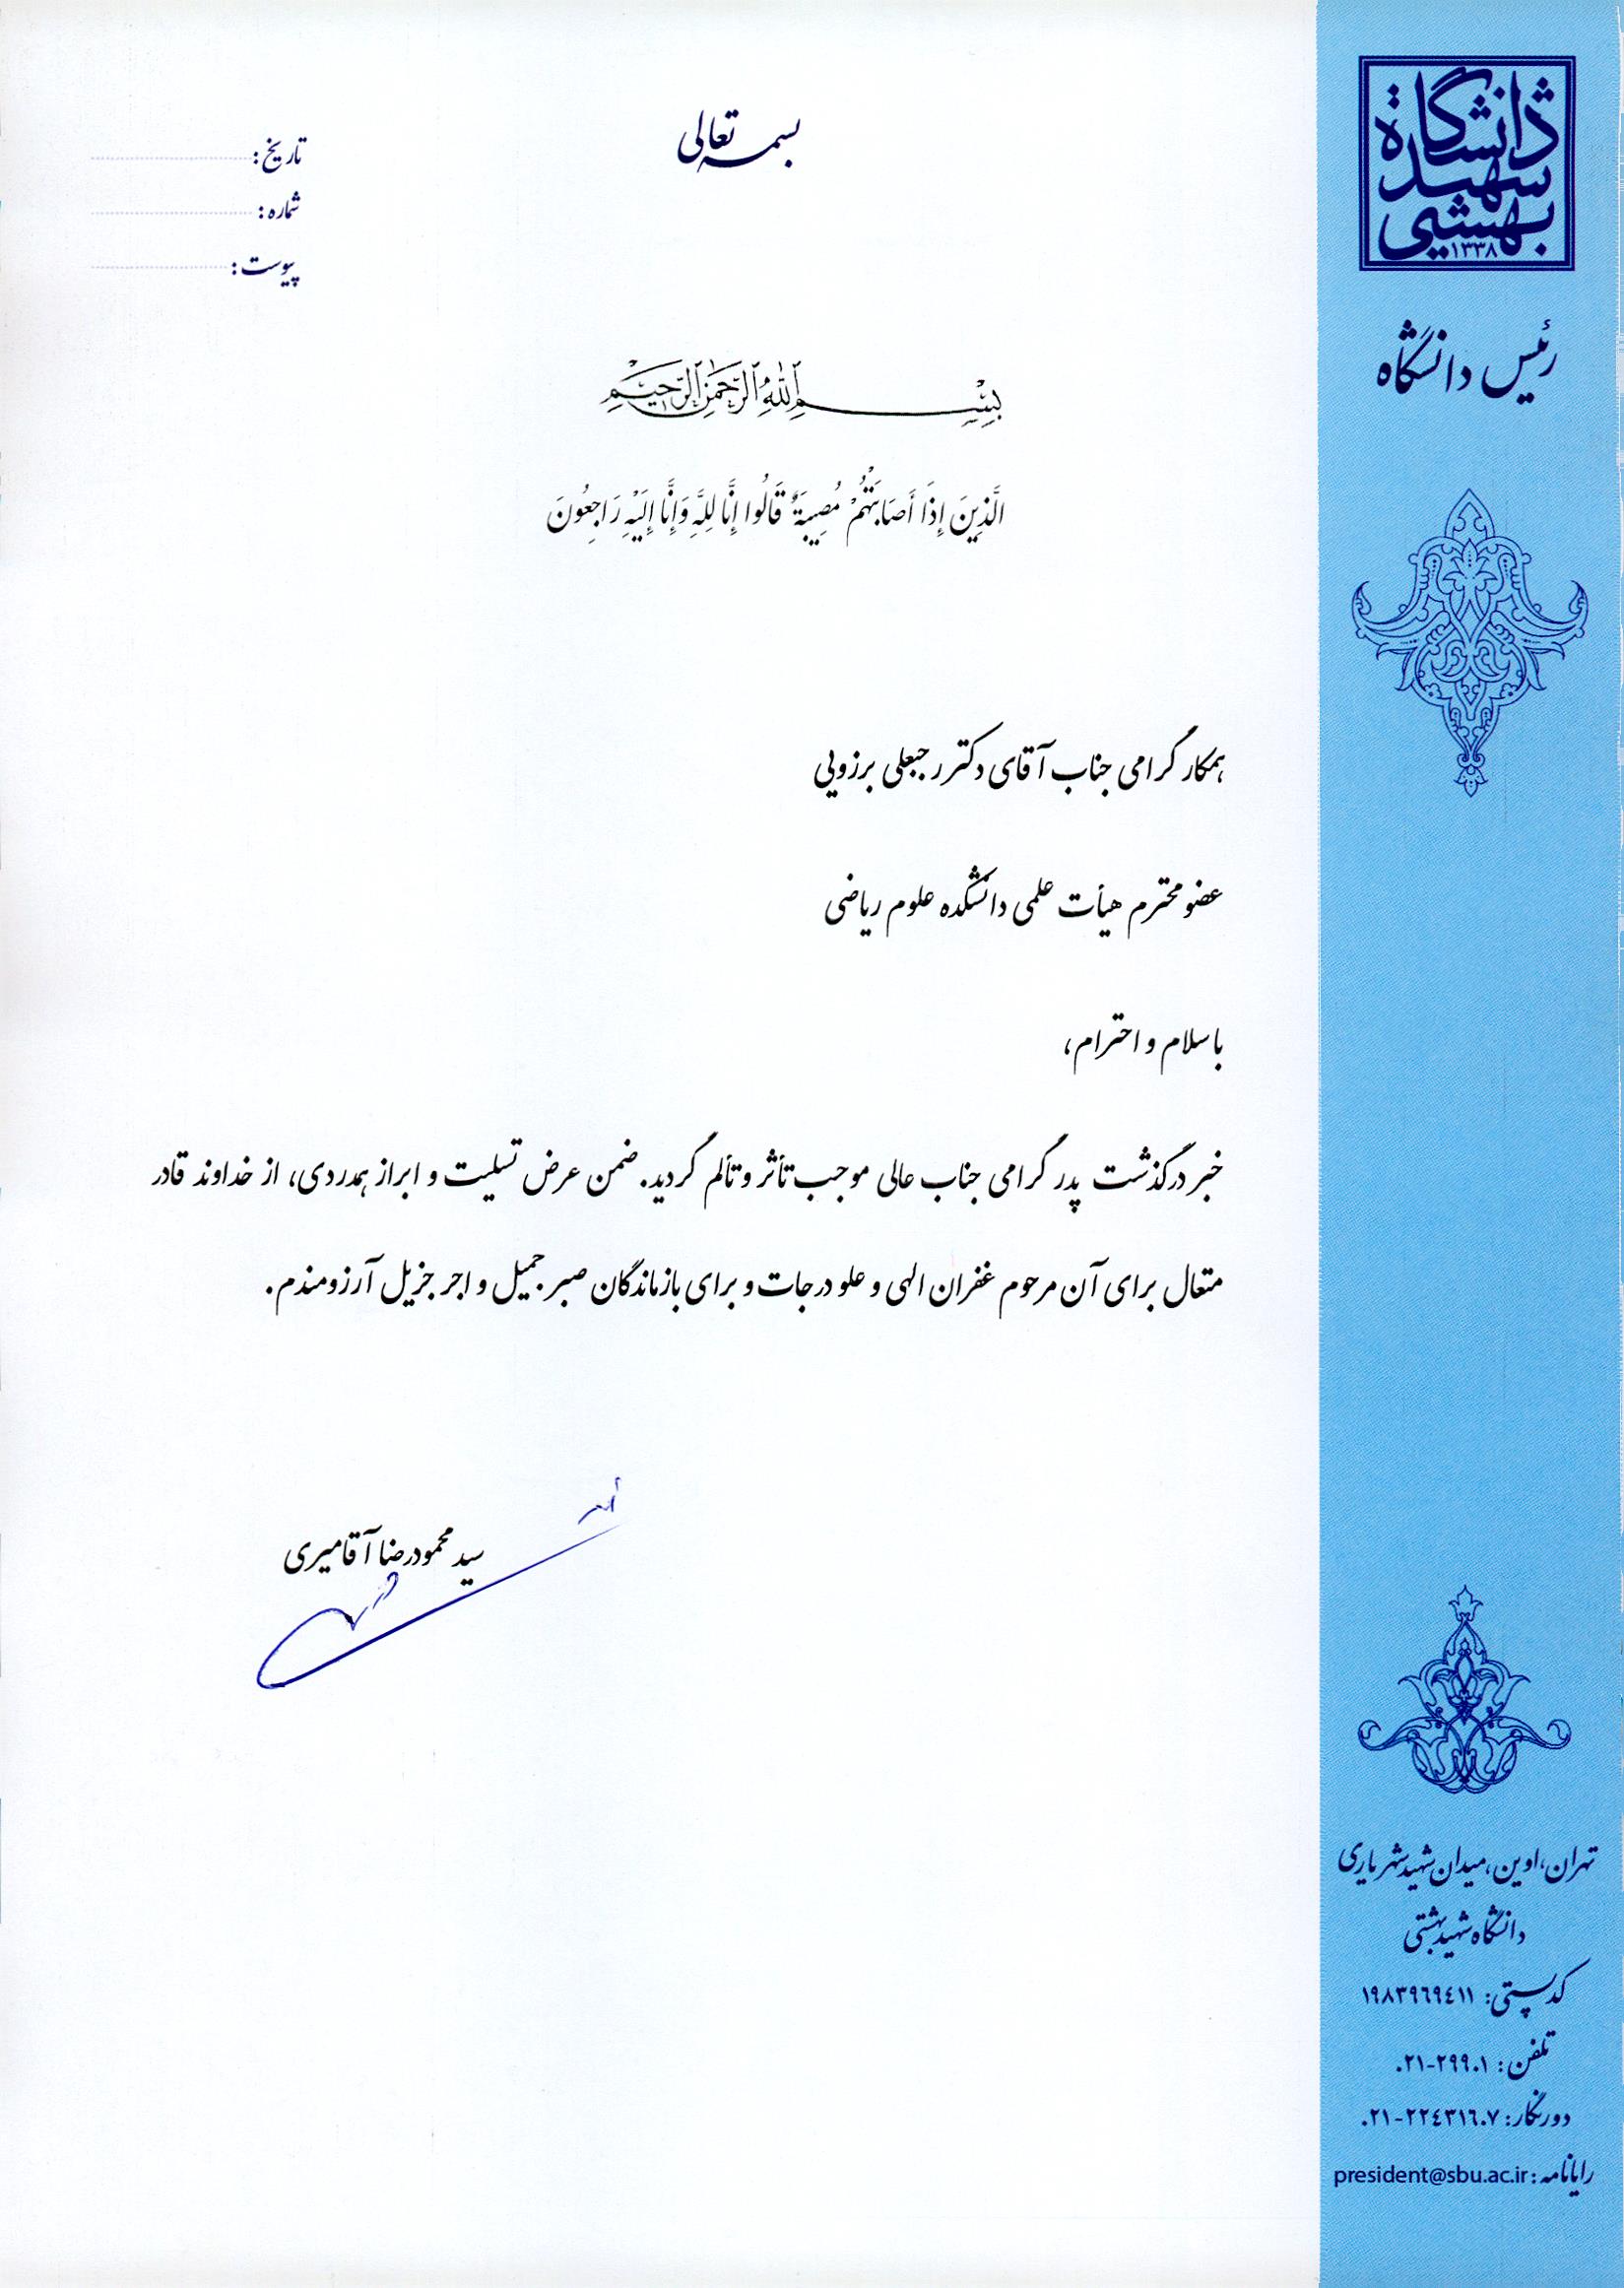 دانشگاه
شهید
بهشتی
۱۳۳۸
رئیس دانشگاه
بسمه تعالی
تاریخ:
شماره:
پیوست:
بِسْمِ اللَّهِ الرَّحْمَٰنِ الرَّحِيمِ
الَّذِينَ إِذَا أَصَابَتْهُمْ مُصِيبَةٌ قَالُوا إِنَّا لِلَّهِ وَإِنَّا إِلَيْهِ رَاجِعُونَ
همکار گرامی جناب آقای دکتر رجبعلی برزویی
عضو محترم هیأت علمی دانشکده علوم ریاضی
با سلام و احترام،
خبر درگذشت پدر گرامی جناب عالی موجب تأثر و تألم گردید. ضمن عرض تسلیت و ابراز همدردی، از خداوند قادر
متعال برای آن مرحوم غفران الهی و علو درجات و برای بازماندگان صبر جمیل و اجر جزیل آرزومندم.
سید محمودرضا آقامیری
تهران، اوین، میدان شهید شهریاری
دانشگاه شهید بهشتی
کدپستی: ۱۹۸۳۹۶۹٤۱۱
تلفن: ۰۲۱-۲۹۹۰۱
دورنگار: ۰۲۱-۲۲٤۳۱٦۰۷
رایانامه: president@sbu.ac.ir